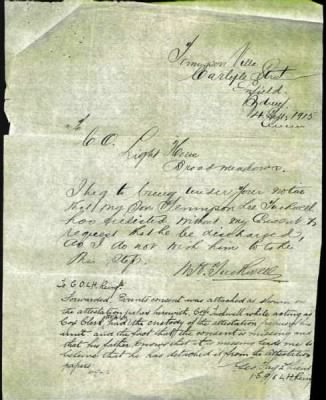 Tennyson Villa
Carlyle Street
Enfield
Sydney
14 Sept. 1915
To
C.O. Light Horse
Broadmeadows.
I beg to bring under your notice
that my Son Tennyson Lee Tuckwell
has enlisted without my Consent &
request that he be discharged,
as I do not wish him to take
this Step.
Tuckwell
To C.O. L.H. Reinf.
Forwarded. Parents consent was attached as shown on
the attestation papers herewith. Cpl Tuckwell while acting as
Clerk had the custody of the attestation papers of his
unit and the fact that the consent is missing and
that his father knows that it is missing leads me to
believe that he has detached it from the attestation
papers
L.H. Reinf